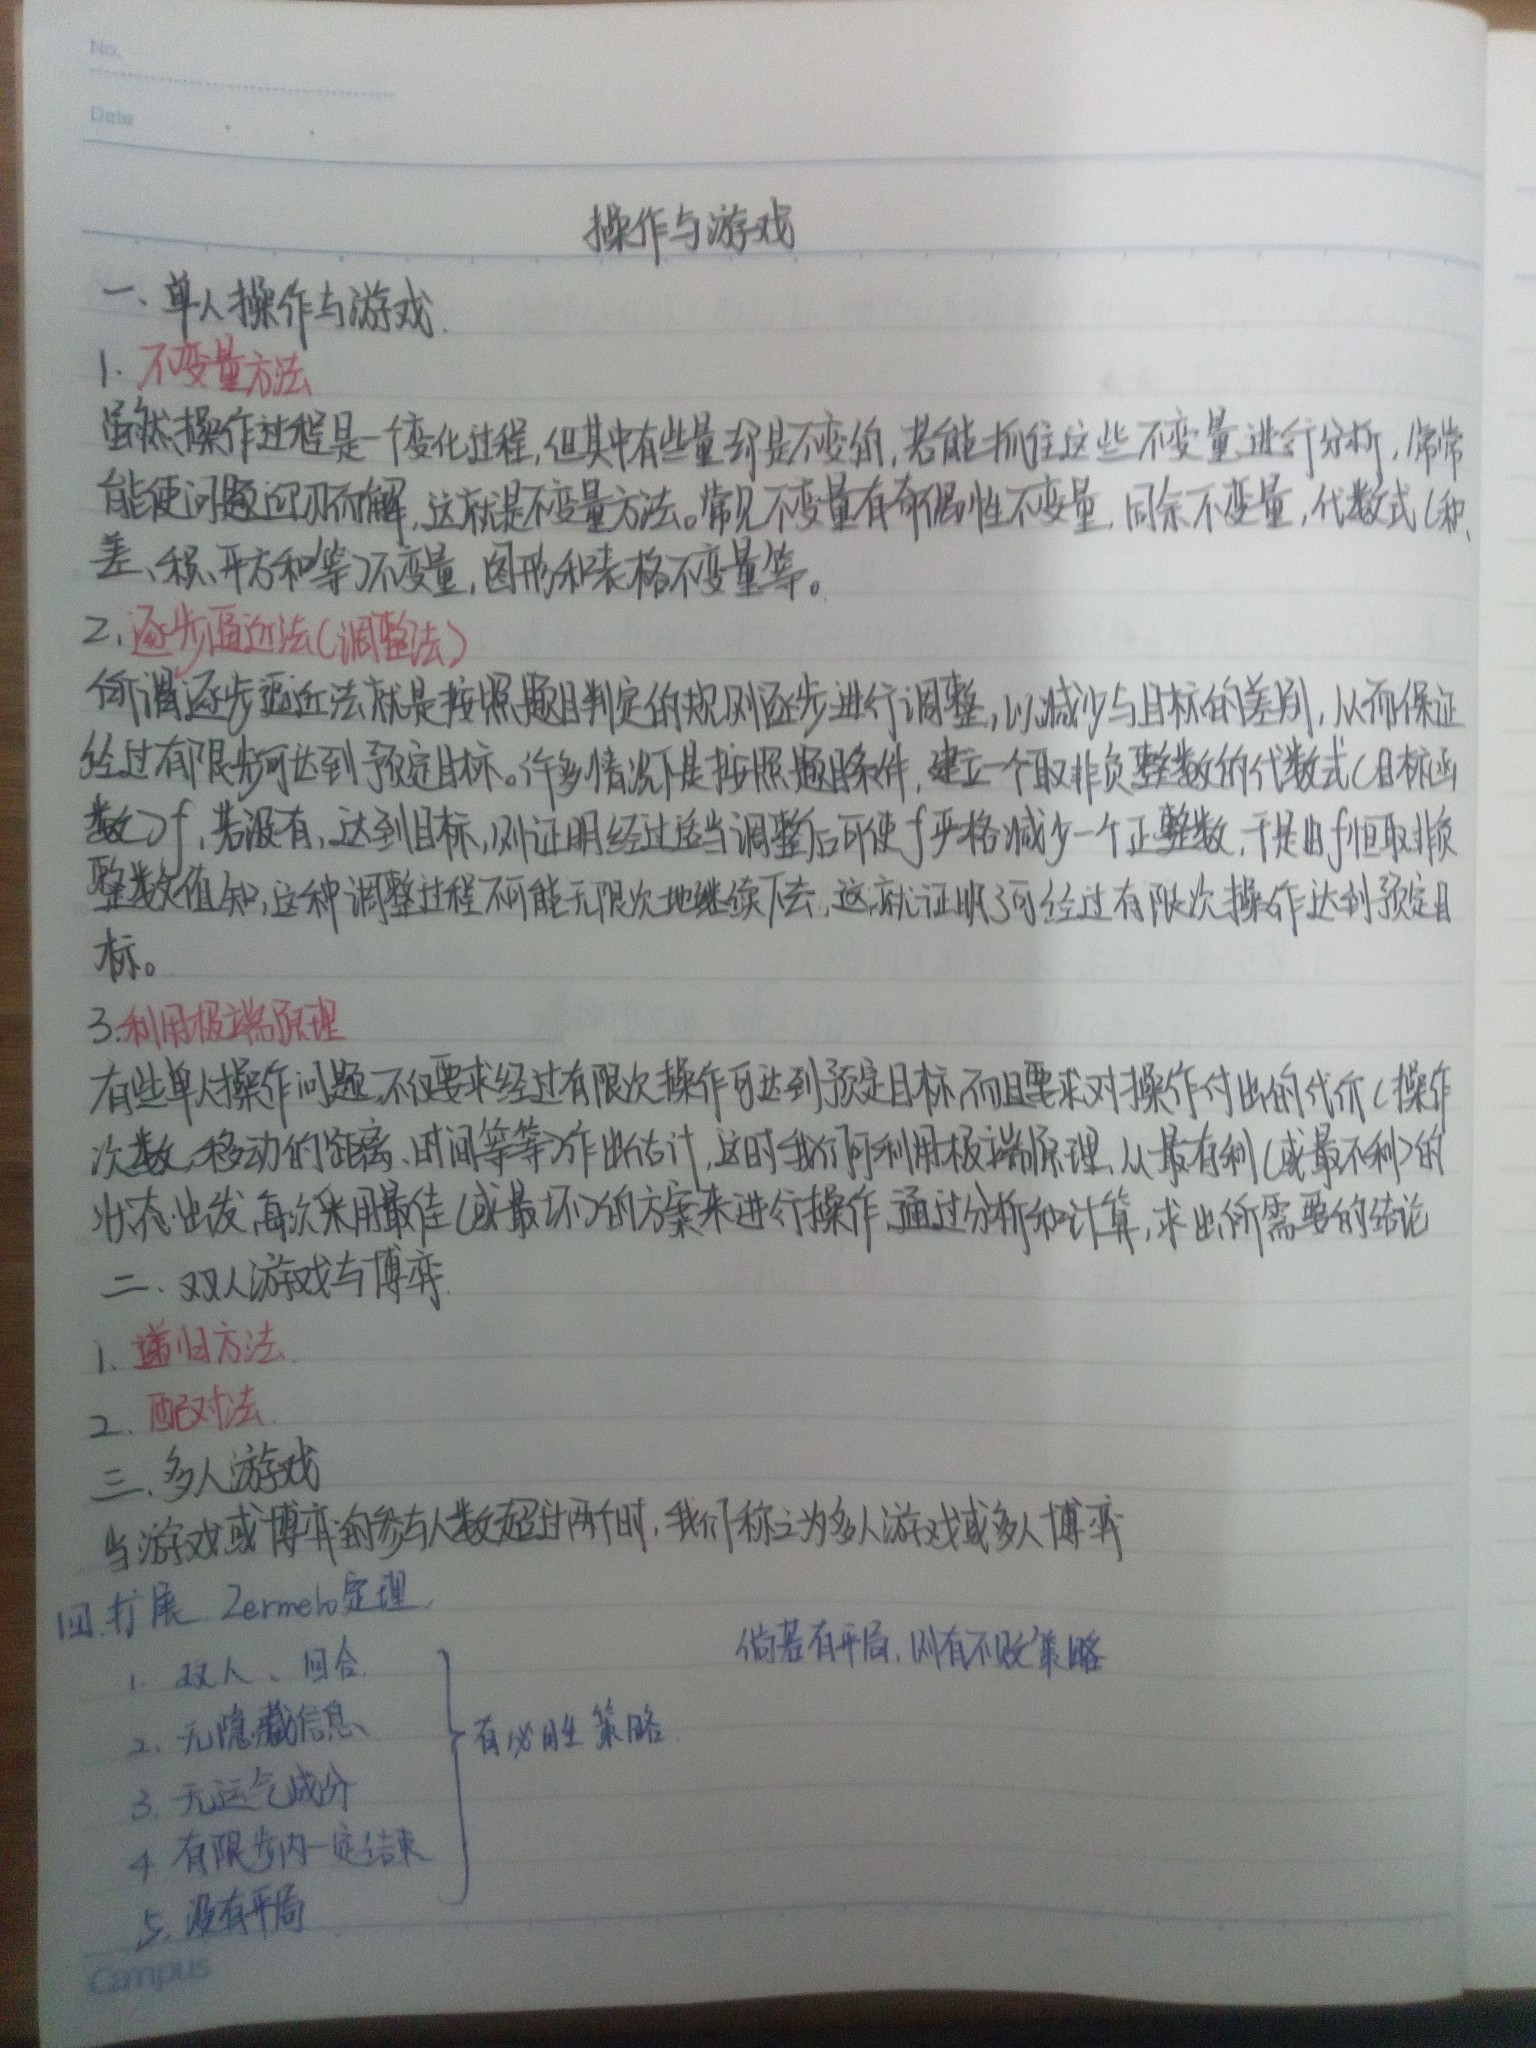 No.
Date
操作与游戏
一、单人操作与游戏.
1. 不变量方法
虽然操作过程是一个变化过程,但其中有些量却是不变的,若能抓住这些不变量进行分析,常常
能使问题迎刃而解,这就是不变量方法。常见不变量有奇偶性不变量,同余不变量,代数式(和、
差、积、平方和等)不变量,图形和表格不变量等。
2. 逐步逼近法(调整法)
所谓逐步逼近法就是按照题目判定的规则逐步进行调整,以减少与目标的差别,从而保证
经过有限步可达到预定目标。许多情况下是按照题目条件,建立一个取非负整数的代数式(目标函
数)f,若没有,达到目标,则证明经过适当调整后可使f严格减少一个正整数,于是由f恒取非负
整数值知,这种调整过程不可能无限次地继续下去,这就证明了可经过有限次操作达到预定目
标。
3.利用极端原理
有些单人操作问题,不仅要求经过有限次操作可达到预定目标,而且要求对操作付出的代价(操作
次数、移动的距离、时间等等)作出估计,这时我们可利用极端原理,从最有利(或最不利)的
状态出发,每次采用最佳(或最坏)的方案来进行操作,通过分析和计算,求出所需要的结论
二、双人游戏与博弈.
1. 递归方法.
2. 配对法.
三、多人游戏
当游戏或博弈的参与人数超过两个时,我们称之为多人游戏或多人博弈
四.扩展 Zermelo定理.
倘若有平局,则有不败策略
1. 双人、回合.
2. 无隐藏信息、
有必胜策略.
3. 无运气成分
4. 有限步内一定结束
5. 没有平局
Campus